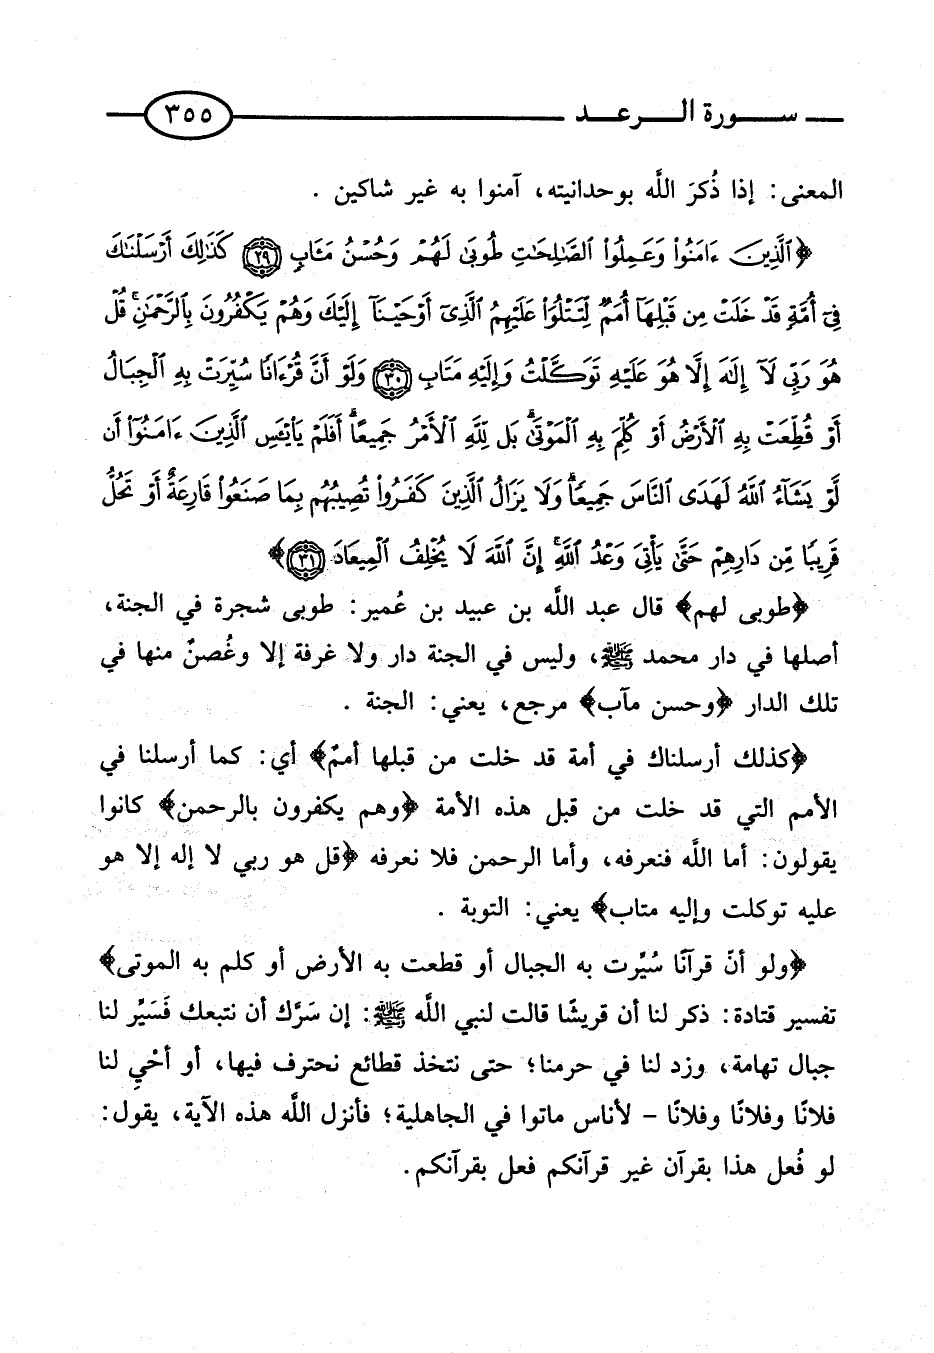 سورة الرعد ٣٥٥
المعنى: إذا ذُكرَ اللَّه بوحدانيته، آمنوا به غير شاكين .
﴿ٱلَّذِينَ ءَامَنُوا۟ وَعَمِلُوا۟ ٱلصَّـٰلِحَـٰتِ طُوبَىٰ لَهُمْ وَحُسْنُ مَـَٔابٍ ۝٢٩ كَذَٰلِكَ أَرْسَلْنَـٰكَ
فِىٓ أُمَّةٍ قَدْ خَلَتْ مِن قَبْلِهَآ أُمَمٌ لِّتَتْلُوَا۟ عَلَيْهِمُ ٱلَّذِىٓ أَوْحَيْنَآ إِلَيْكَ وَهُمْ يَكْفُرُونَ بِٱلرَّحْمَـٰنِ ۚ قُلْ
هُوَ رَبِّى لَآ إِلَـٰهَ إِلَّا هُوَ عَلَيْهِ تَوَكَّلْتُ وَإِلَيْهِ مَتَابِ ۝٣٠ وَلَوْ أَنَّ قُرْءَانًا سُيِّرَتْ بِهِ ٱلْجِبَالُ
أَوْ قُطِّعَتْ بِهِ ٱلْأَرْضُ أَوْ كُلِّمَ بِهِ ٱلْمَوْتَىٰ ۗ بَل لِّلَّهِ ٱلْأَمْرُ جَمِيعًا ۗ أَفَلَمْ يَا۟يْـَٔسِ ٱلَّذِينَ ءَامَنُوٓا۟ أَن
لَّوْ يَشَآءُ ٱللَّهُ لَهَدَى ٱلنَّاسَ جَمِيعًا ۗ وَلَا يَزَالُ ٱلَّذِينَ كَفَرُوا۟ تُصِيبُهُم بِمَا صَنَعُوا۟ قَارِعَةٌ أَوْ تَحُلُّ
قَرِيبًا مِّن دَارِهِمْ حَتَّىٰ يَأْتِىَ وَعْدُ ٱللَّهِ ۚ إِنَّ ٱللَّهَ لَا يُخْلِفُ ٱلْمِيعَادَ ۝٣١﴾
﴿طوبى لهم﴾ قال عبد اللَّه بن عبيد بن عُمير: طوبى شجرة في الجنة،
أصلها في دار محمد ﷺ، وليس في الجنة دار ولا غرفة إلا وغُصنٌ منها في
تلك الدار ﴿وحسن مآب﴾ مرجع، يعني: الجنة .
﴿كذلك أرسلناك في أمة قد خلت من قبلها أممٌ﴾ أي: كما أرسلنا في
الأمم التي قد خلت من قبل هذه الأمة ﴿وهم يكفرون بالرحمن﴾ كانوا
يقولون: أما اللَّه فنعرفه، وأما الرحمن فلا نعرفه ﴿قل هو ربي لا إله إلا هو
عليه توكلت وإليه متاب﴾ يعني: التوبة .
﴿ولو أنّ قرآنًا سُيِّرت به الجبال أو قطعت به الأرض أو كلم به الموتى﴾
تفسير قتادة: ذكر لنا أن قريشًا قالت لنبي اللَّه ﷺ: إن سَرَّك أن نتبعك فَسَيِّر لنا
جبال تهامة، وزد لنا في حرمنا؛ حتى نتخذ قطائع نحترف فيها، أو أحْيِ لنا
فلانًا وفلانًا وفلانًا - لأناس ماتوا في الجاهلية؛ فأنزل اللَّه هذه الآية، يقول:
لو فُعل هذا بقرآن غير قرآنكم فعل بقرآنكم.